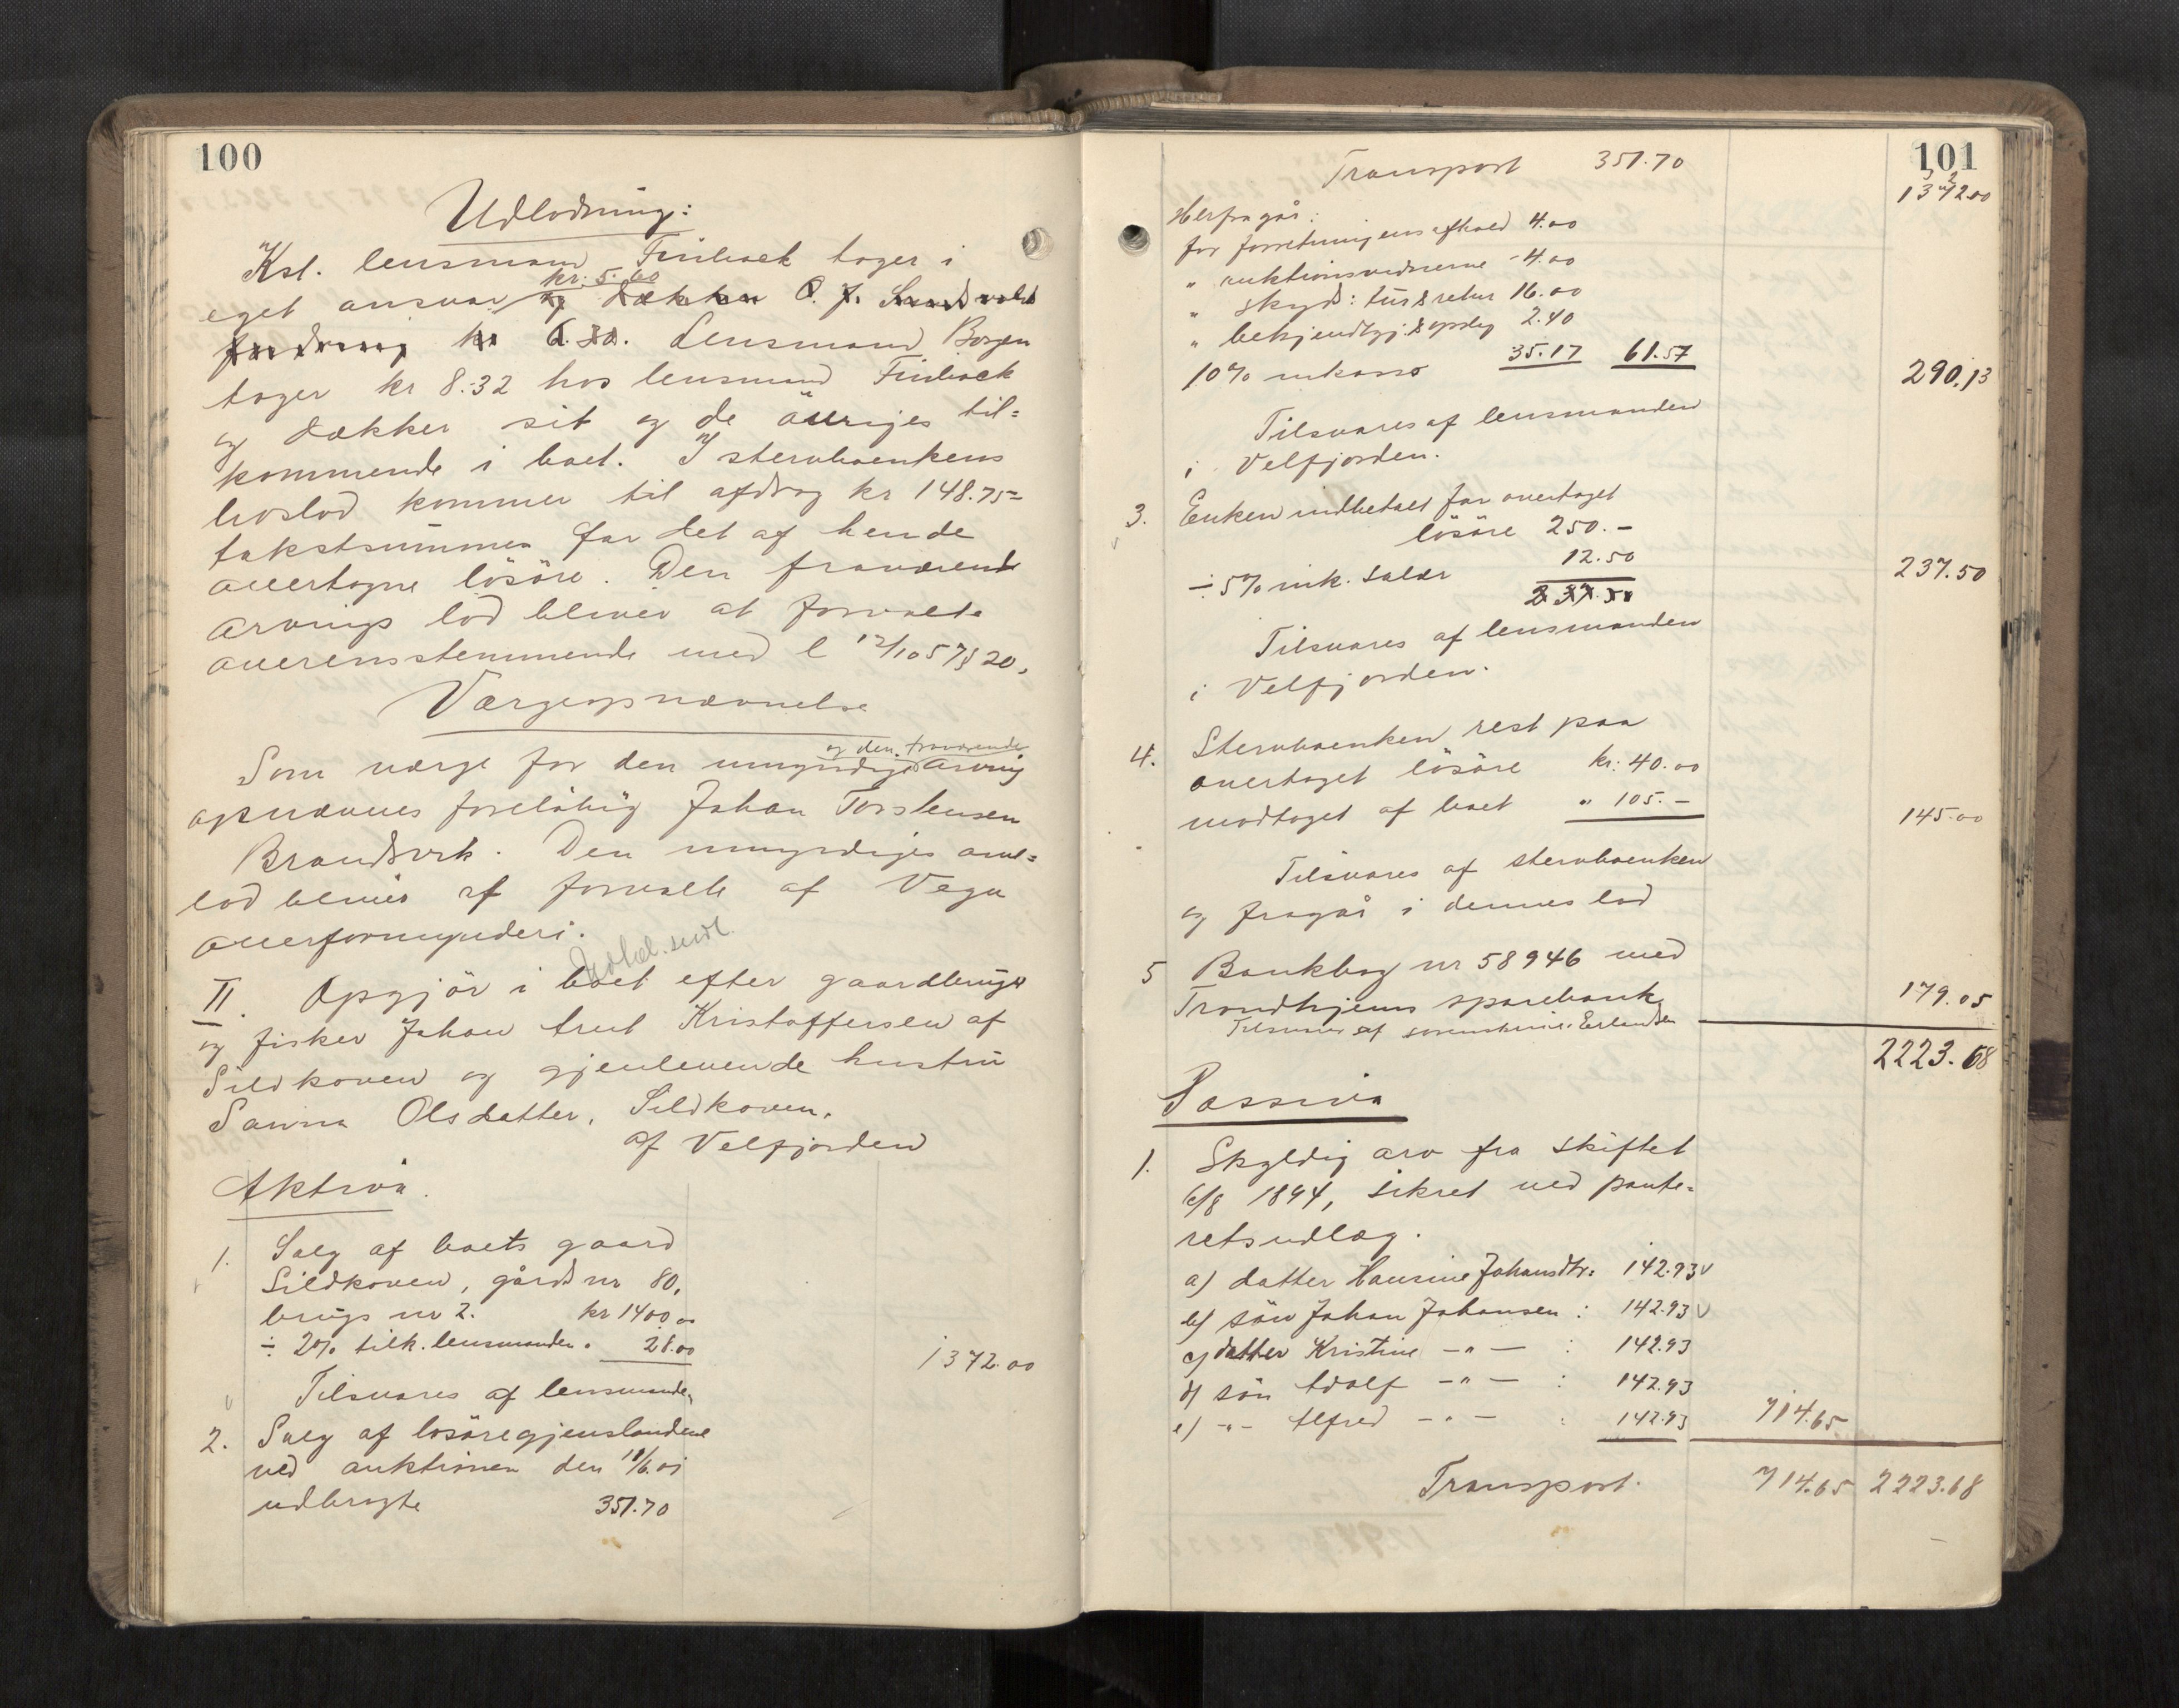 100
Udlodning:
Kst. lensmand Finbak tager i
kr. 5.60
eget ansvar og dækker O. J. Sandvold
fordring kr 6.30. Lensmand Borgen
tager kr 8.32 hos lensmand Finbak
og dækker sit og de øvriges til=
kommende i boet. I stervboenkens
boslod kommer til afdrag kr 148.75 =
takstsummen for det af hende
overtagne løsøre. Den fraværende
arvings lod bliver at forvalte
overensstemmende med l 12/10 57 § 20.
Værgeopnævnelse
og den fraværende
Som værge for den umyndige arving
opnævnes foreløbig Johan Torstensen
Brandsvik. Den umyndiges arve=
lod bliver at forvalte af Vega
overformynderi.
Udtal. sendt.
II. Opgjør i boet efter gaardbruger
og fisker Johan Arnt Kristoffersen af
Sildkoven og gjenlevende hustru
Sanna Olsdatter, Sildkoven.
af Velfjorden
Aktiva.
1. Salg af boets gaard
Sildkoven, gårds nr 80,
brugs nr 2. kr 1400.00
÷ 2% tilk. lensmanden " 28.00 1372.00
Tilsvares af lensmanden
2. Salg af løsøregjenstandene
ved auktionen den 18/6.01
udbragte 351.70
101
Transport 351.70 1372.00
Herfra går:
for forretningens afhold 4.00
" auktionsvidnerne - 4.00
" skyds: tur & retur 16.00
" bekjendtgj. & opslag 2.40
10% inkasso 35.17 61.57 290.13
Tilsvares af lensmanden
i Velfjorden.
3. Enken indbetalt for overtaget
løsøre 250.-
÷ 5% ink. salær 12.50 237.50
237.50
Tilsvares af lensmanden
i Velfjorden.
4. Stervboenken rest paa
overtaget løsøre kr: 40.00
modtaget af boet " 105.- 145.00
Tilsvares af stervboenken
og fragår i dennes lod
5 Bankbog nr 58946 med
Trondhjems sparebank 179.05
Tilsvares af sorenskriver Erlandsen
2223.68
Passiva
1. Skyldig arv fra skiftet
6/8 1894, sikret ved pante=
retsudlæg.
a) datter Hansine Johansdtr: 142.93 v
b) søn Johan Johansen : 142.93 v
c) datter Kristine -"- : 142.93
d) søn Adolf -"- : 142.93
e) -"- Alfred -"- : 142.93 714.65
Transport. 714.65 2223.68